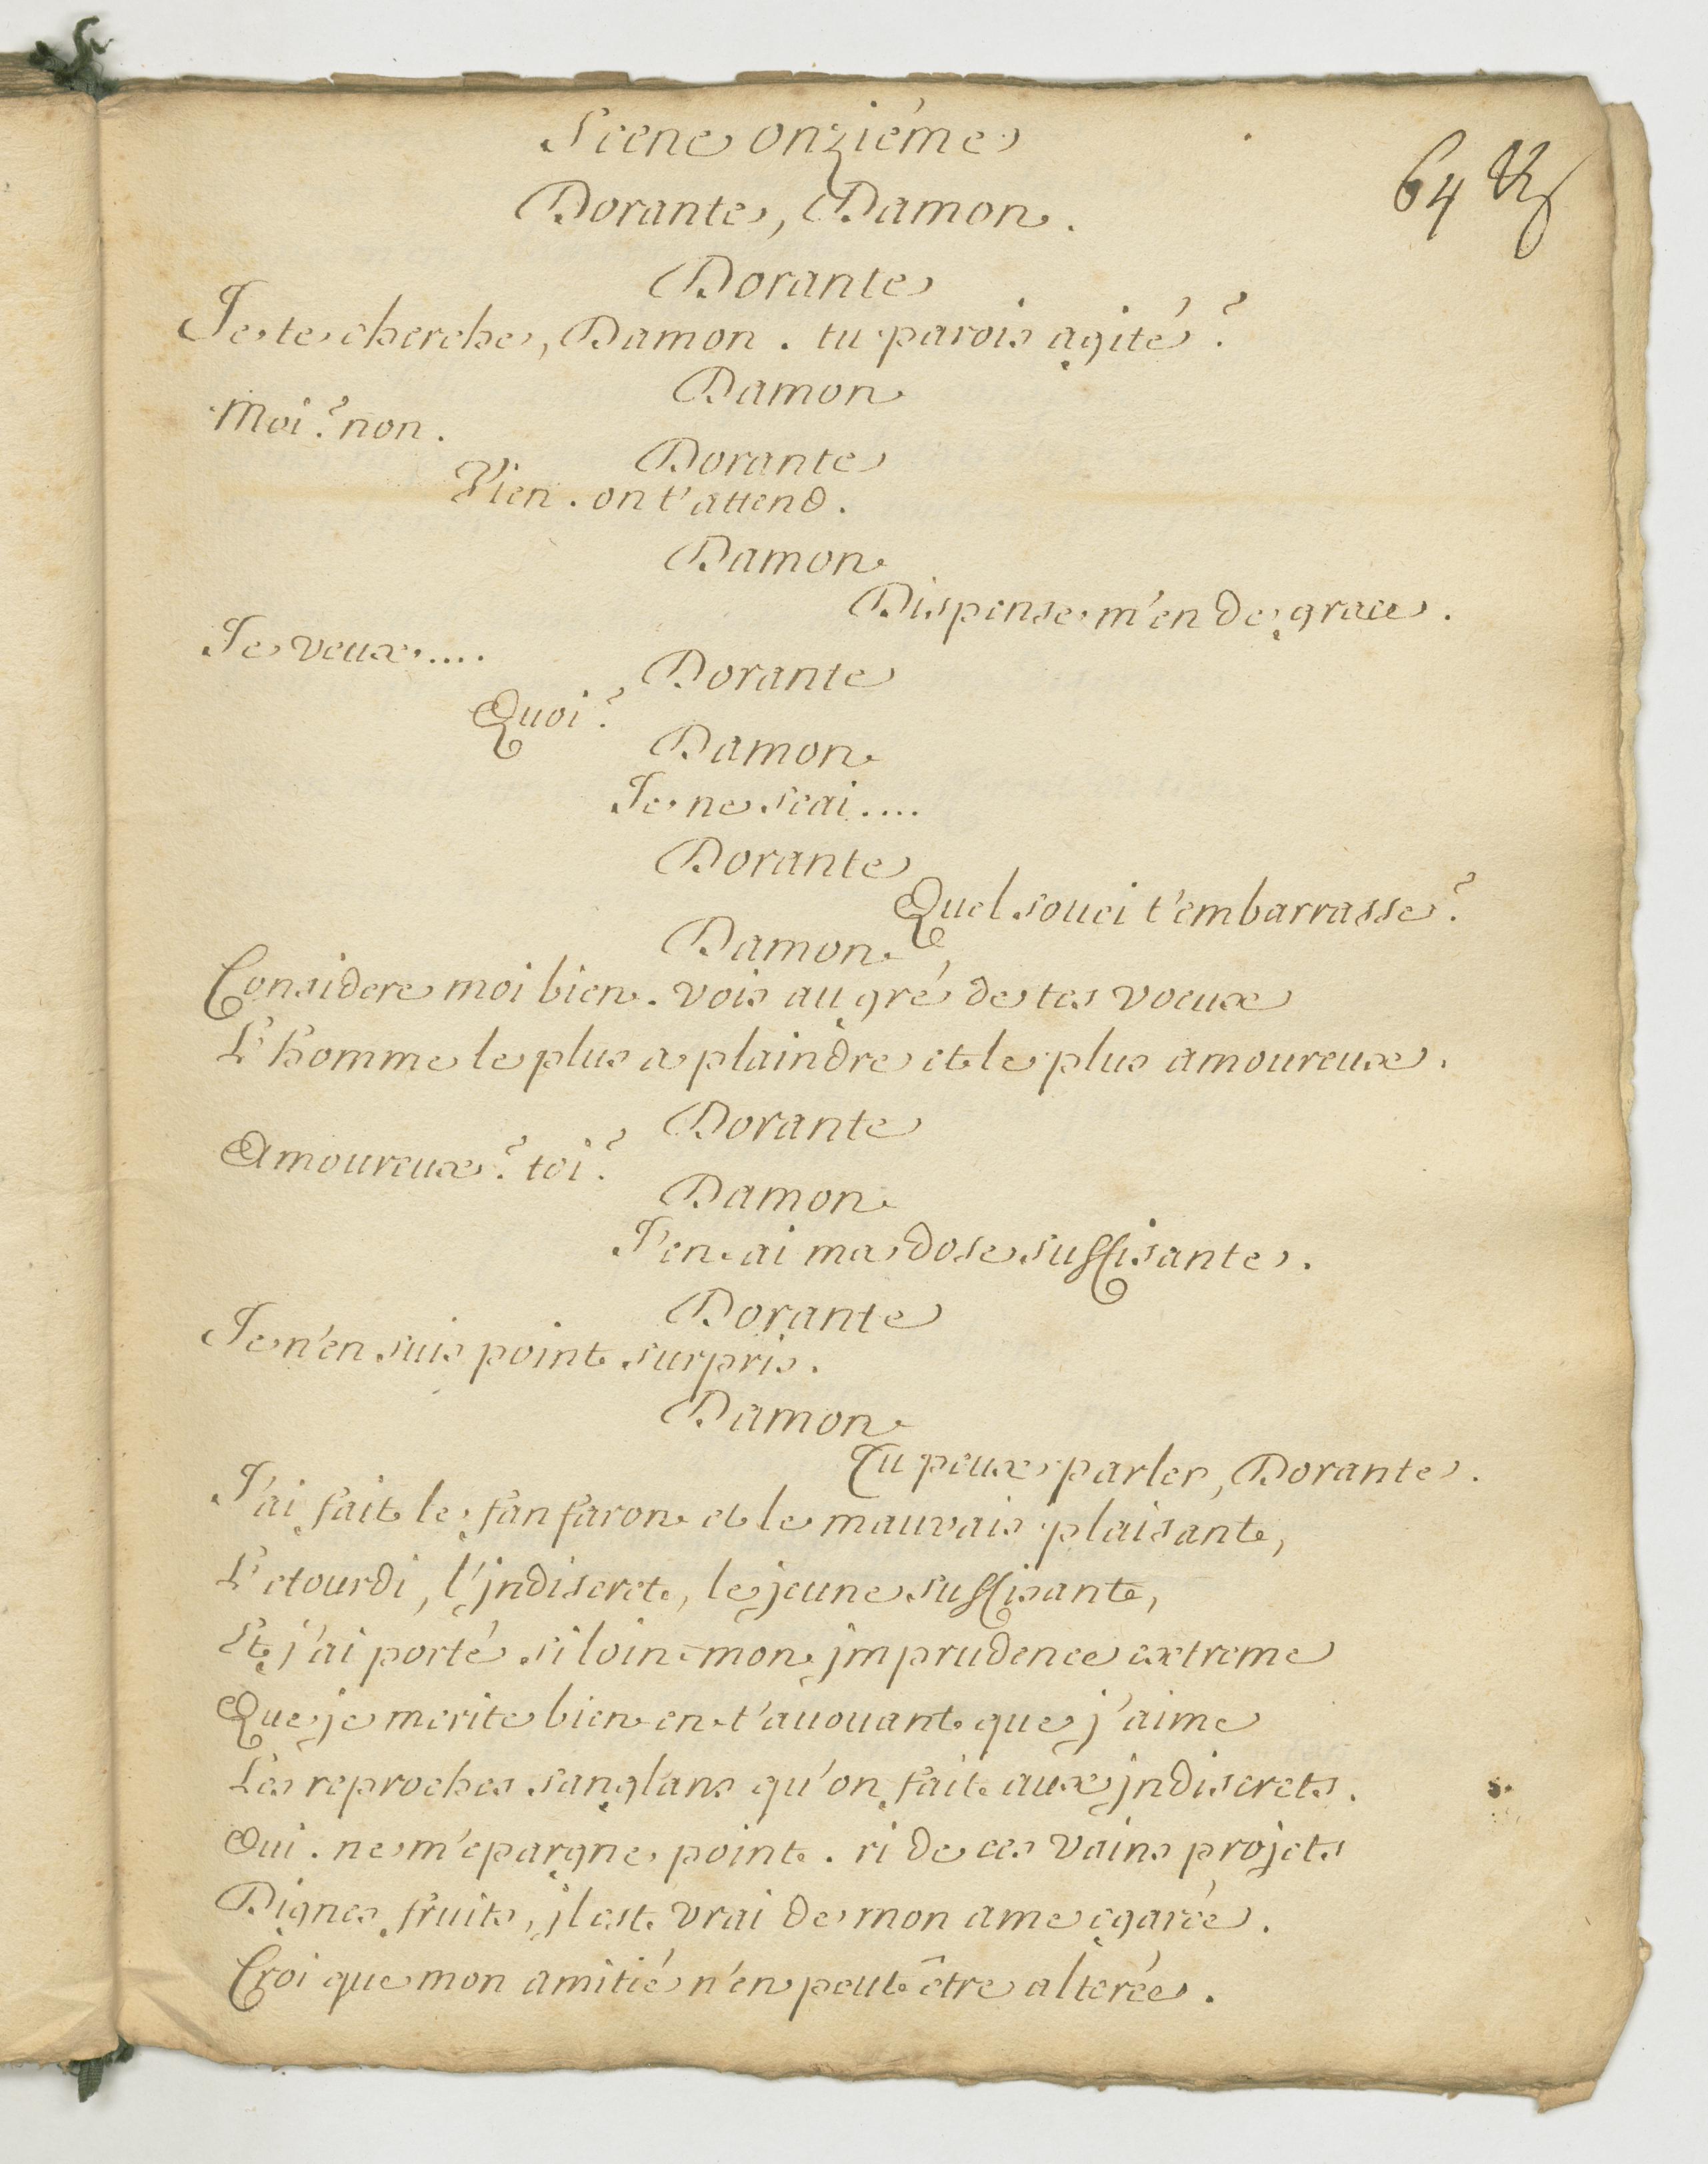 Scene onziéme
64
Dorante, Damon.
Dorante
Je te cherche, Damon. tu parois agité?
Damon
Moi? non.
Dorante
Vien. on t'attend.
Damon
Dispense m'en de grace.
Je veux....
Dorante
Quoi?
Damon
Je ne scai....
Dorante
Quel souci t'embarrasse?
Damon
Considere moi bien. vois au gré de tes voeux
L'homme le plus a plaindre et le plus amoureux.
Dorante
Amoureux? toi?
Damon
J'en ai ma dose suffisante.
Dorante
Je n'en suis point surpris.
Damon
Tu peux parler, Dorante.
J'ai fait le fanfaron et le mauvais plaisant,
L'etourdi, l'jndiscret, le jeune suffisant,
Et j'ai porté si loin mon jmprudence extreme
Que je merite bien en t'auouant que j'aime
Les reproches sanglans qu'on fait aux jndiscrets.
Oui. ne m'epargne point. ri de ces vains projets
Dignes fruits, jl est vrai de mon ame egarée.
Croi que mon amitié n'en peut être alterée.